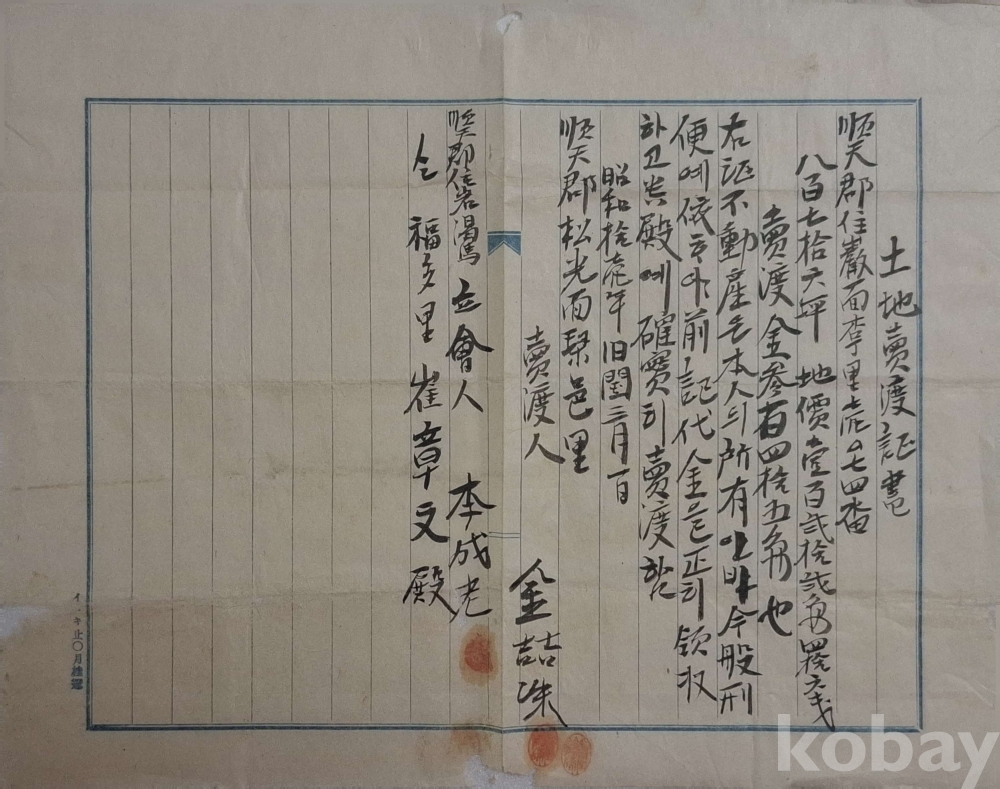 土地賣渡証書
順天郡住巖面李里壱〇七四番
八百七拾六坪 地價壹百弐拾弐円四拾六戋
賣渡金參百四拾五円也
右記不動産은本人의所有인바今般刑
便에依하야前記代金을正히領收
하고貴殿에確實히賣渡함
昭和拾壱年旧閏三月一日
順天郡松光面梨邑里
賣渡人 金喆洙
順天郡住岩 立會人 本成老
仝 福多里 崔章文殿
kobay